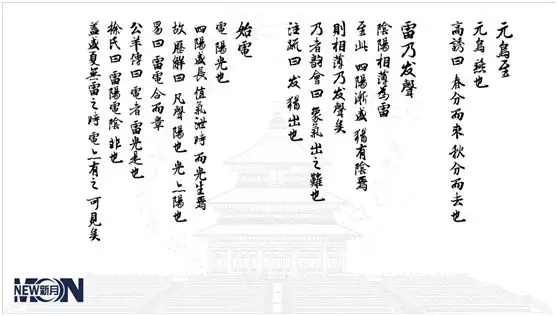 元鳥至
元鳥燕也
高誘曰 春分而來 秋分而去也
雷乃发聲
陰陽相薄為雷
至此 四陽漸盛 猶有陰焉
則相薄乃发聲矣
乃者韵會曰 象氣出之難也
注疏曰 发 猶出也
始電
電 陽光也
四陽盛長 值氣泄時 而光生焉
故應解曰 凡聲陽也 光亦陽也
易曰 雷電合而章
公羊傳曰 電者雷光是也
徐氏曰 雷陽電陰 非也
蓋盛夏無雷之時 電亦有之 可見矣
MOON
NEW新月